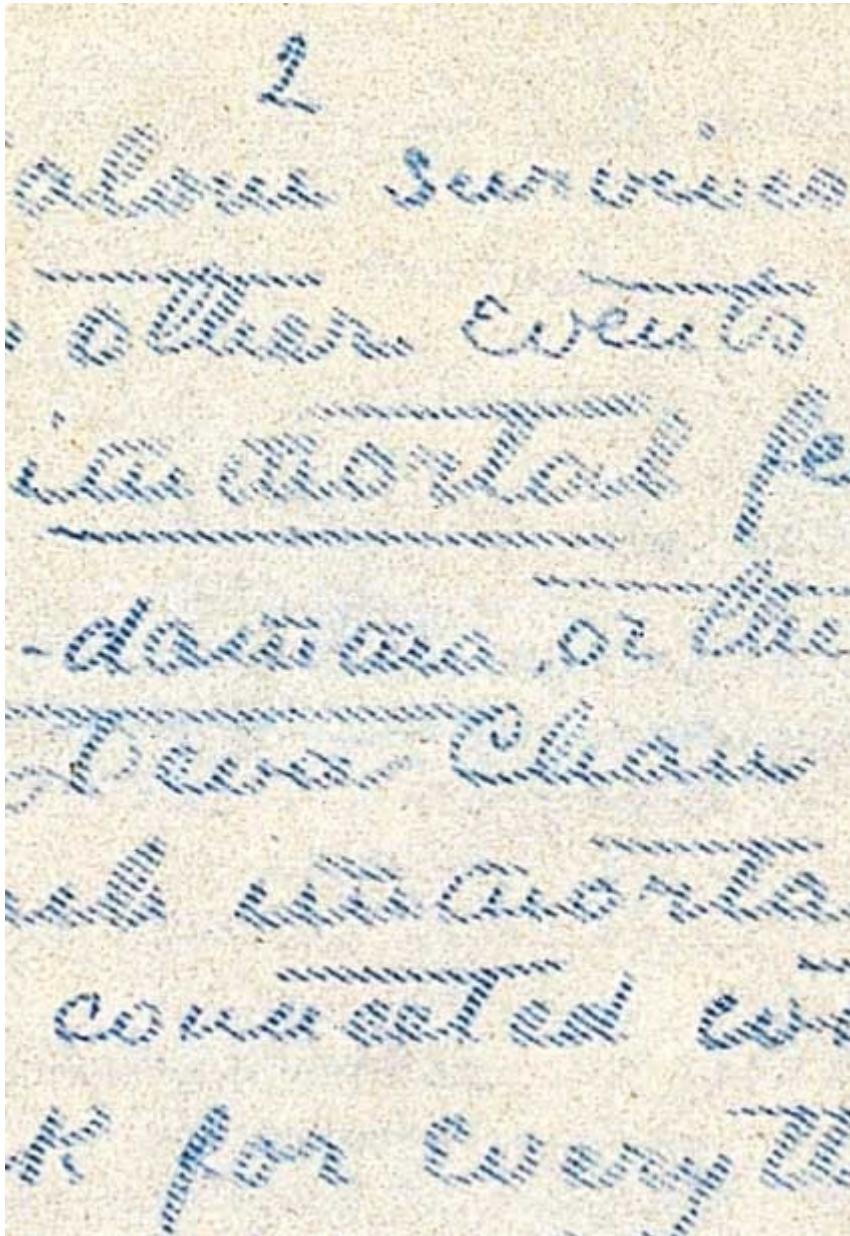 2
alone survives
other events
immortal fe
-damma or the
Deva Chan
immorta
connected
for every th